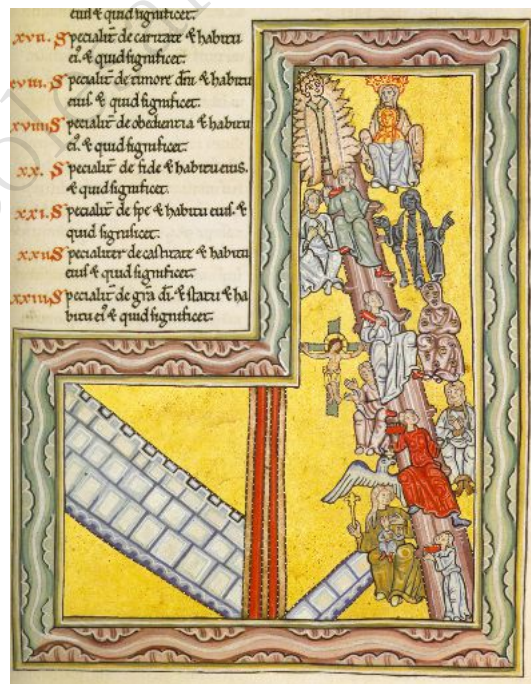 eiuſ & quid ſignificet.
xvii. Specialit̄ de caritate & habitu
eiꝰ. & quid ſignificet.
xviii. Specialit̄ de timore dn̄i & habitu
eiuſ. & quid ſignificet.
xviiii Specialit̄ de obedientia & habitu
eiꝰ. & quid ſignificet.
xx. Specialit̄ de fide & habitu eius.
& quid ſignificet.
xxi. Specialit̄ de ſpe & habitu eiuſ. &
quid ſignificet.
xxii Specialiter de caſtitate & habitu
eiuſ & quid ſignificet.
xxiii Specialit̄ de gr̄a dī. & ſtatu & ha
bitu eiꝰ & quid ſignificet.